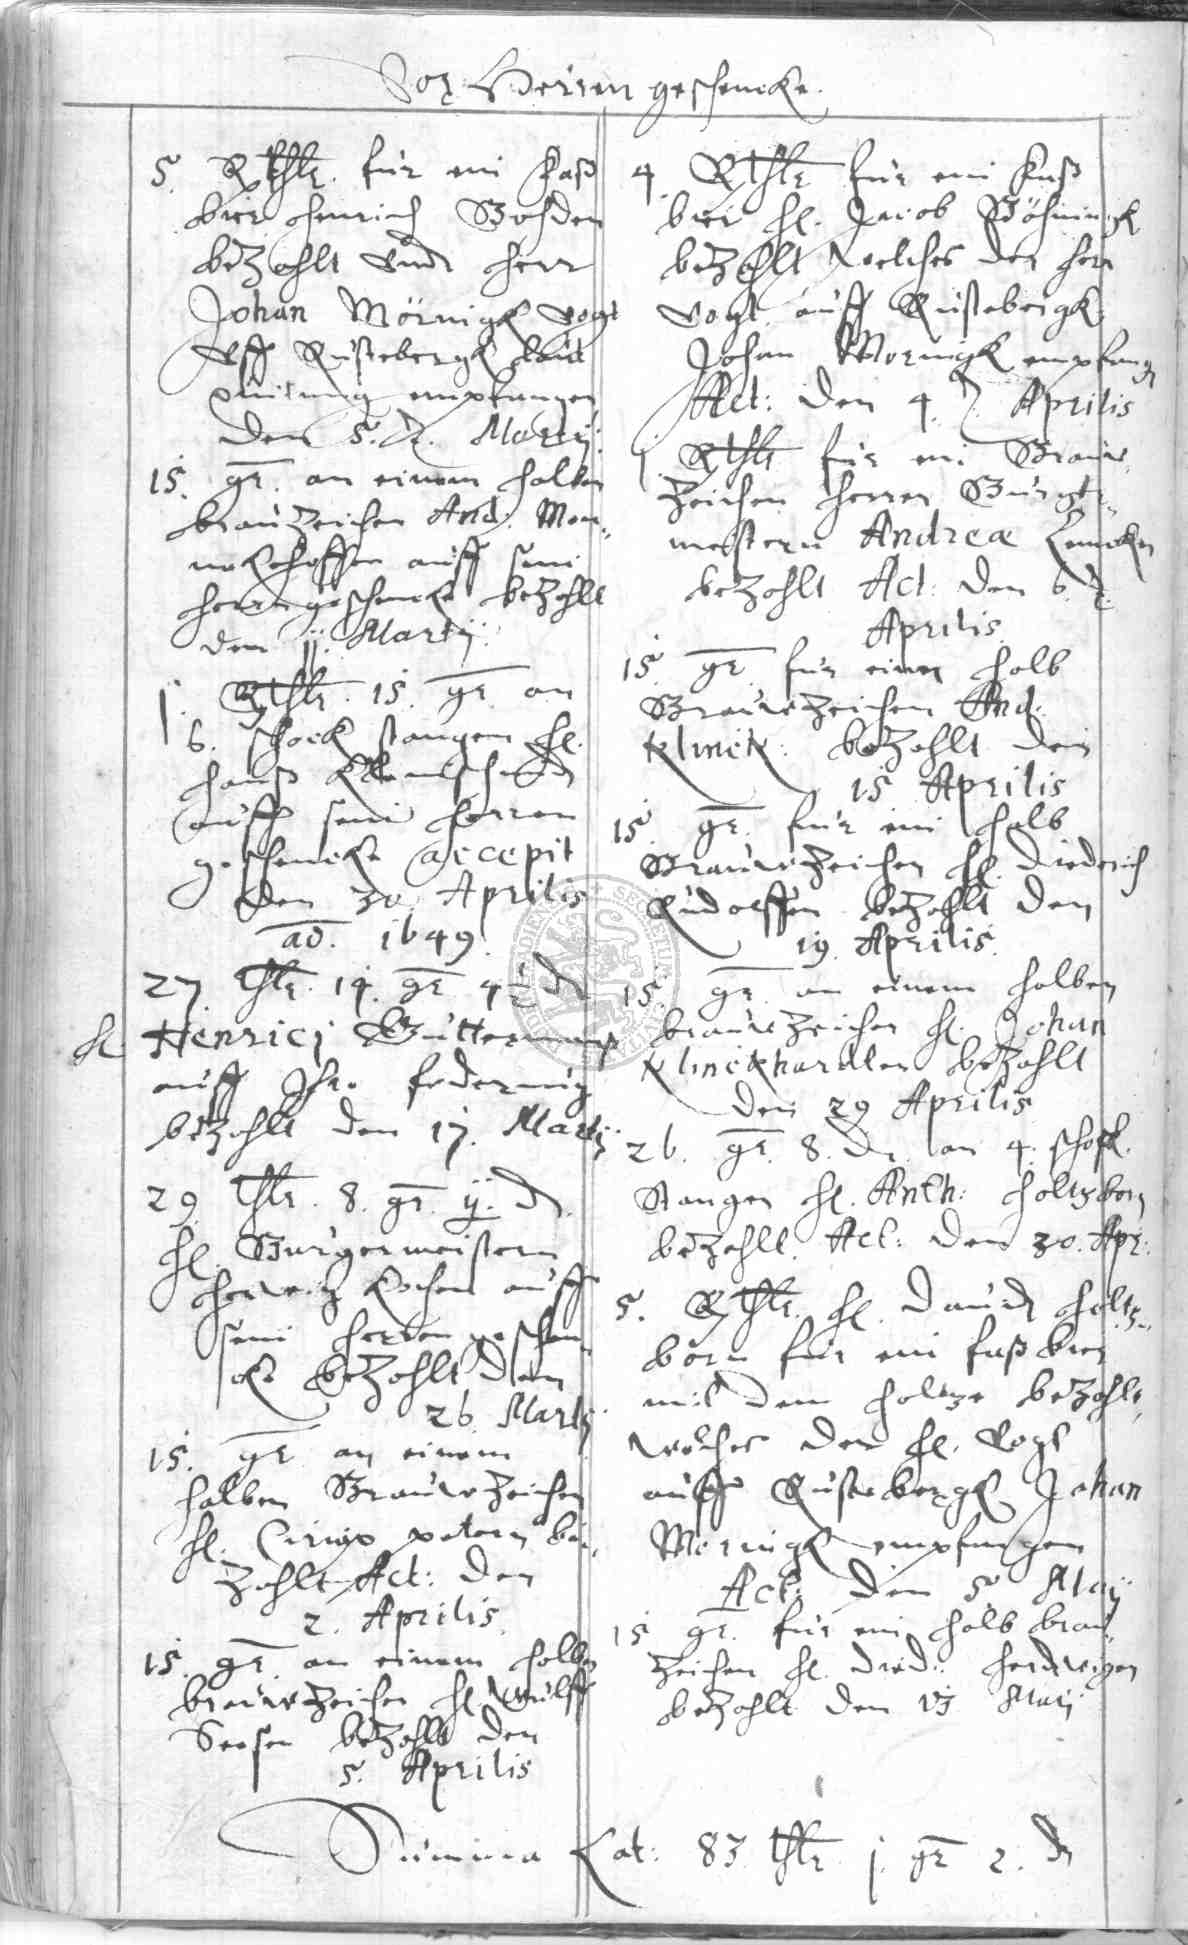 Vor Herren geschencke.
5. Rthlr. für ein Faß
bier Henrich Bohden
bezahlt vndt Herr
Johan Mörnigk Vogt
vff Rusteberg laut
quitung empfangen
den 5. d. Martij.
15. gr. an einem halben
brauzeichen And. Mon-
neckhoffen auff sein
herrngeschencke bezahlt
den jj. Martij.
1. Rthlr. 15. gr. an
6. schock stangen H.
Hanß
auff sein Herren
geschencke accepit
den 30 Aprilis
ao. 1649.
27 thlr. 14. gr. 4½ d
H. Henrici Gutterman
auff Ihr foderung
bezahlt den 17. Martij
29 thlr. 8. gr. ij. d.
H. Burgermeistern
Kochen auff
sein herren geschen-
cke bezahlt den
26 Martij
15. gr. an einem
halben Brauwzeichen
H. Ciriax petern be-
zahlt Act: den
2. Aprilis.
15. gr. an einem halben
brauwzeichen H. Wulff
Seesen bezahlt den
5. Aprilis
4. Rthlr für ein Faß
bier H. Jacob Böhningk
bezahlt welches der Herr
Vogt auff Rustebergk
Johan Mornigk empfangen
Act: den 4. d. Aprilis
1. Rthlr für ein Brauw-
zeichen Herren Burger-
meistern Andreæ
bezahlt Act: den 6. d.
Aprilis
15. gr. für einen halb
Brauwzeichen And:
Klinck: bezahlt den
15 Aprilis
15. gr. für ein halb
Brauwzeichen H. Diederich
Rudolffen bezahlt den
19. Aprilis.
15. gr. an einem halben
brauwzeichen H. Johan
Klinckhardten bezahlt
den 29 Aprilis
26. gr. 8. d. an 4. schock.
Stangen H. Anth: Holtzborn
bezahlt. Act: den 30. Apr:
5. Rthlr. H. Dauidt Holtz-
born für ein faß bier
mit dem holtze bezahlt,
welches der H. Vogt
auff Rustebergk Johan
Mornigk empfangen
Act: den 5 Maij
15 gr. für ein halb brau-
zeichen H. Died: Hardwigen
bezahlt den Maij
Summa Lat: 83 thlr j. gr 2. d